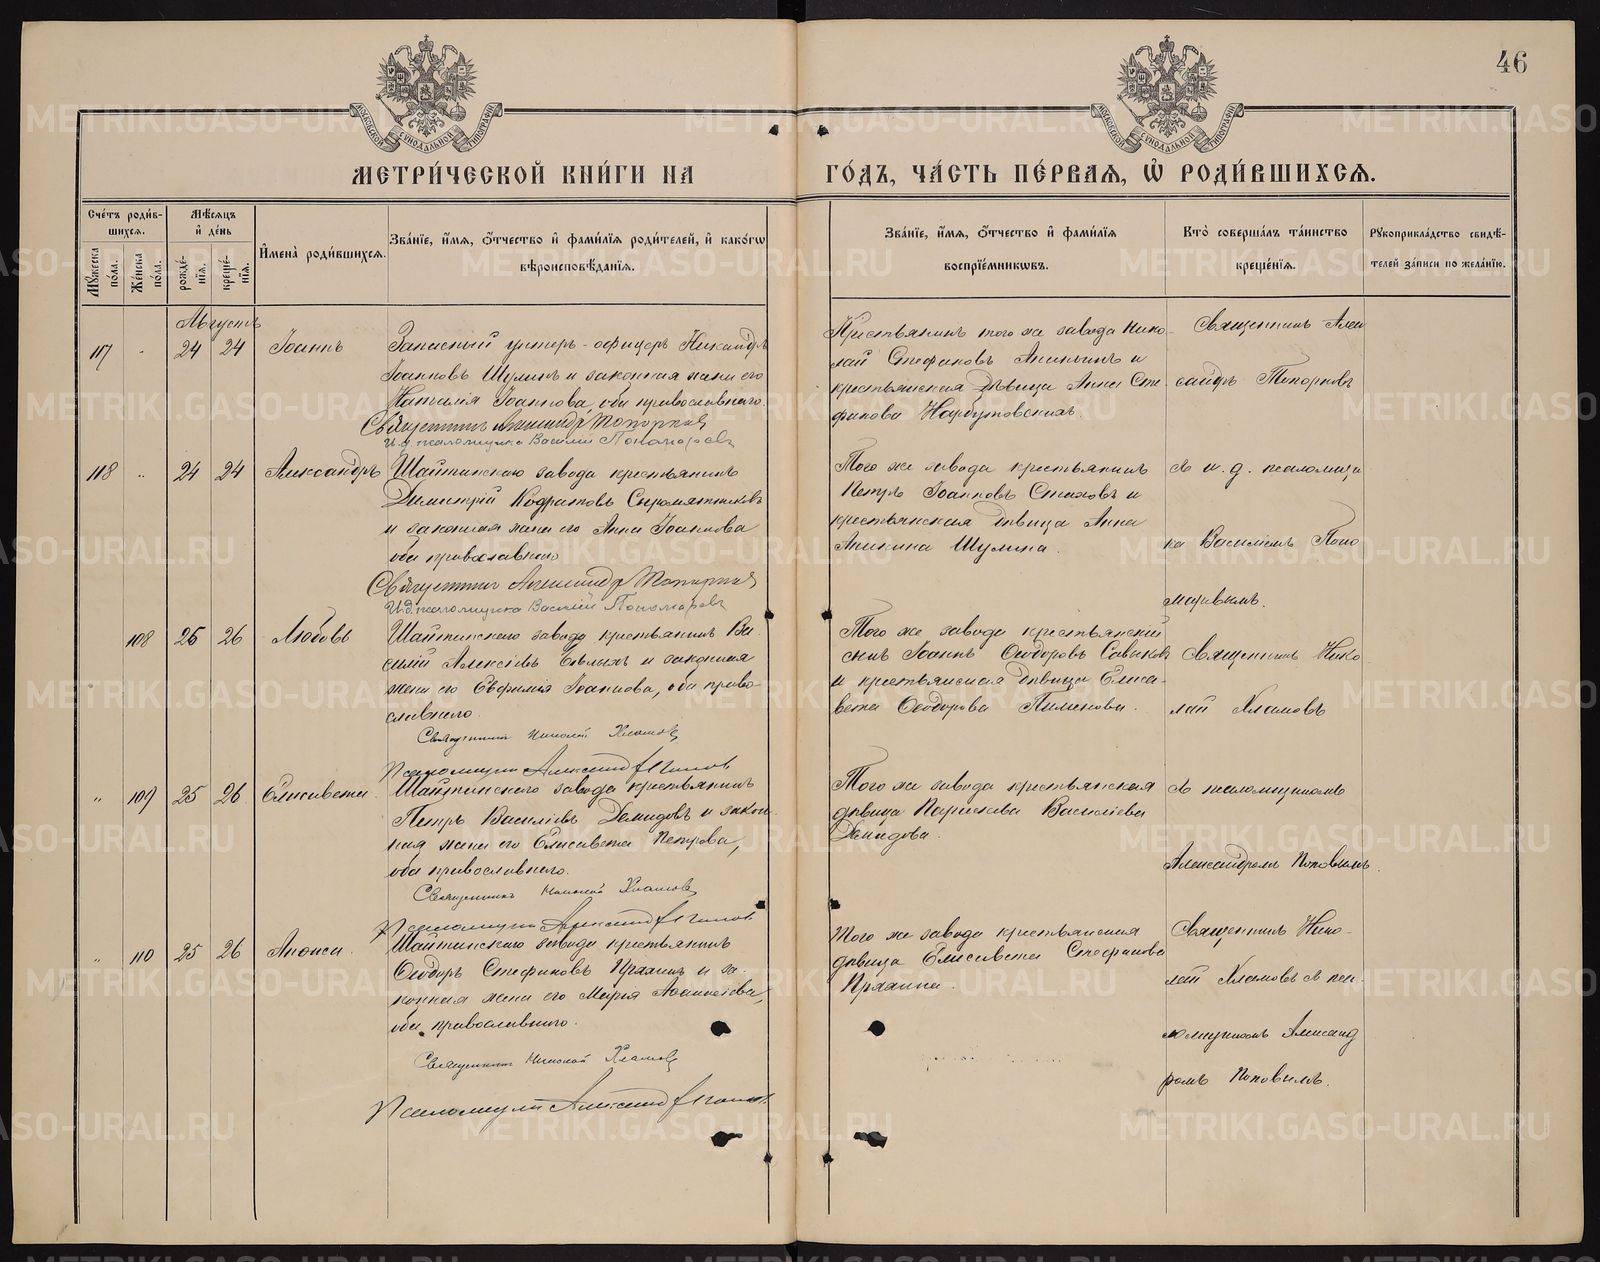 46
МОСКОВСКОЙ СѴНОДАЛЬНОЙ ТИПОГРАФІИ
МОСКОВСКОЙ СѴНОДАЛЬНОЙ ТИПОГРАФІИ
МЕТРИ́ЧЕСКОЙ КНИ́ГИ НА ГО́ДЪ, ЧА́СТЬ ПЕ́РВАЯ, Ѽ РОДИ́ВШИХСЯ.
Сче́тъ роди́в-
шихся.
Мꙋ́жеска по́ла.
Же́нска по́ла.
Мѣ́сяцъ
и҆ де́нь
рожде́-нїѧ.
креще́-нїѧ.
И҆мена̀ роди́вшихся.
Зва́нїе, и҆́мя, ѻ҆́тчество и҆ фами́лїя роди́телей, и҆ како́гѡ
вѣроисповѣ́данїя.
Зва́нїе, и҆́мя, ѻ҆́тчество и҆ фами́лїя
воспрїе́мникѡвъ.
Кто̀ соверша́лъ та́инство
креще́нїя.
Рꙋкоприкла́дство свидѣ́-
телей за́писи по жела́нїю.
Августъ
117 24 24 Іоаннъ
Запасный унтеръ-офицеръ Никандръ
Іоанновъ Шулинъ и законная жена его
Наталія Іоаннова, оба православнаго.
Священникъ Александръ Топорковъ
И.д. псаломщика Василій Пономаревъ
Крестьянинъ того же завода Нико-
лай Стефановъ и
крестьянская дѣвица Анна Сте-
фанова
Священникъ Алек
сандръ Топорковъ
118 24 24 Александръ
Шайтанскаго завода крестьянинъ
Димитрій Кодратовъ Сыромятниковъ
и законная жена его Анна Іоаннова
оба православнаго
Священникъ Александръ Топорковъ
И.д. псаломщика Василій Пономаревъ
Того же завода крестьянинъ
Петръ Іоанновъ Стаховъ и
крестьянская дѣвица Анна
Аникина Шулина.
съ и. д. псаломщи
ка Василіемъ Поно
маревымъ.
108 25 26 Любовь
Шайтанскаго завода крестьянинъ Ва-
силій Алексіевъ Бѣлыхъ и законная
жена его Евфимія Іоаннова, оба право-
славнаго.
Священникъ Николай Хламовъ
Псаломщикъ Александръ Поповъ
Того же завода крестьянскій
сынъ Іоаннъ Ѳеодоровъ
и крестьянская дѣвица Елиса-
вета Ѳеодорова Пименова.
Священникъ Нико-
лай Хламовъ
109 25 26 Елисавета
Шайтанскаго завода крестьянинъ
Петръ Василіевъ Демидовъ и закон-
ная жена его Елисавета Петрова,
оба православнаго.
Священникъ Николай Хламовъ
Псаломщикъ Александръ Поповъ
Того же завода крестьянская
дѣвица Параскева Василіева
Демидова.
съ псаломщикомъ
Александромъ Поповымъ.
110 25 26 Анфиса
Шайтанскаго завода крестьянинъ
Ѳеодоръ Стефановъ Пряхинъ и за-
конная жена его Марія
оба православнаго.
Священникъ Николай Хламовъ
Псаломщикъ Александръ Поповъ
Того же завода крестьянская
дѣвица Елисавета Стефанова
Пряхина.
Священникъ Нико-
лай Хламовъ съ пса-
ломщикомъ Александ
ромъ Поповымъ.
METRIKI.GASO-URAL.RU